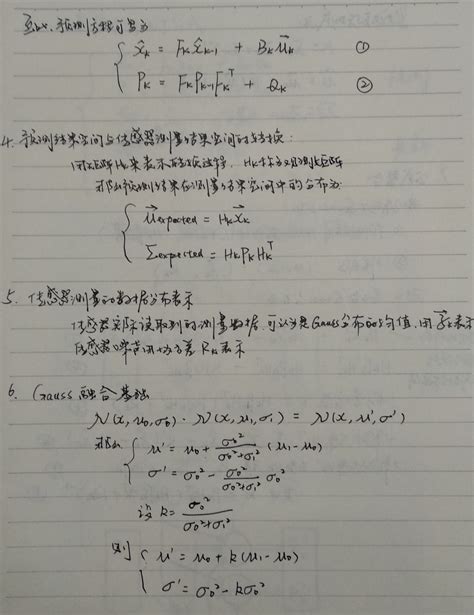 至此,预测方程可写为
{ x̂_k = F_k x̂_{k-1} + B_k μ⃗_k ①
P_k = F_k P_{k-1} F_k^T + Q_k ②
4. 预测结果空间与传感器测量结果空间的转换:
用矩阵H_k来表示
那么预测结果在测量结果空间中的分布为:
{ μ⃗expected = H_k x⃗_k
Σexpected = H_k P_k H_k^T
5. 传感器测量的数据分布表示
传感器实际读取到的测量数据,可认为是Gauss分布的均值,用 z⃗_k表示
传感器噪声用协方差R_k表示
6. Gauss融合基础
N(x, μ0, σ0) · N(x, μ1, σ1) = N(x, μ', σ')
那么 { μ' = μ0 + σ0²/(σ0²+σ1²) (μ1-μ0)
σ' = σ0² - σ0²/(σ0²+σ1²) σ0²
设 k = σ0²/(σ0²+σ1²)
则 { μ' = μ0 + k(μ1-μ0)
σ' = σ0² - kσ0²